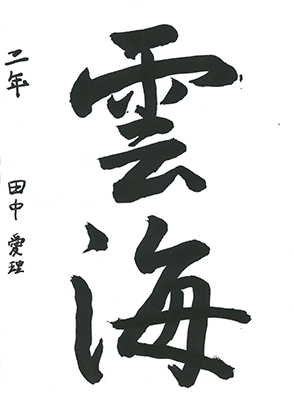 雲海
二年 田中愛理